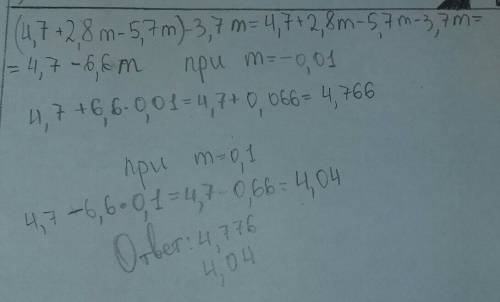 (4,7+2,8m-5,7m)-3,7m=4,7+2,8m-5,7m-3,7m=
=4,7-6,6m при m=-0,01
4,7+6,6·0,01=4,7+0,066=4,766
при m=0,1
4,7-6,6·0,1=4,7-0,66=4,04
Ответ: 4,776
4,04